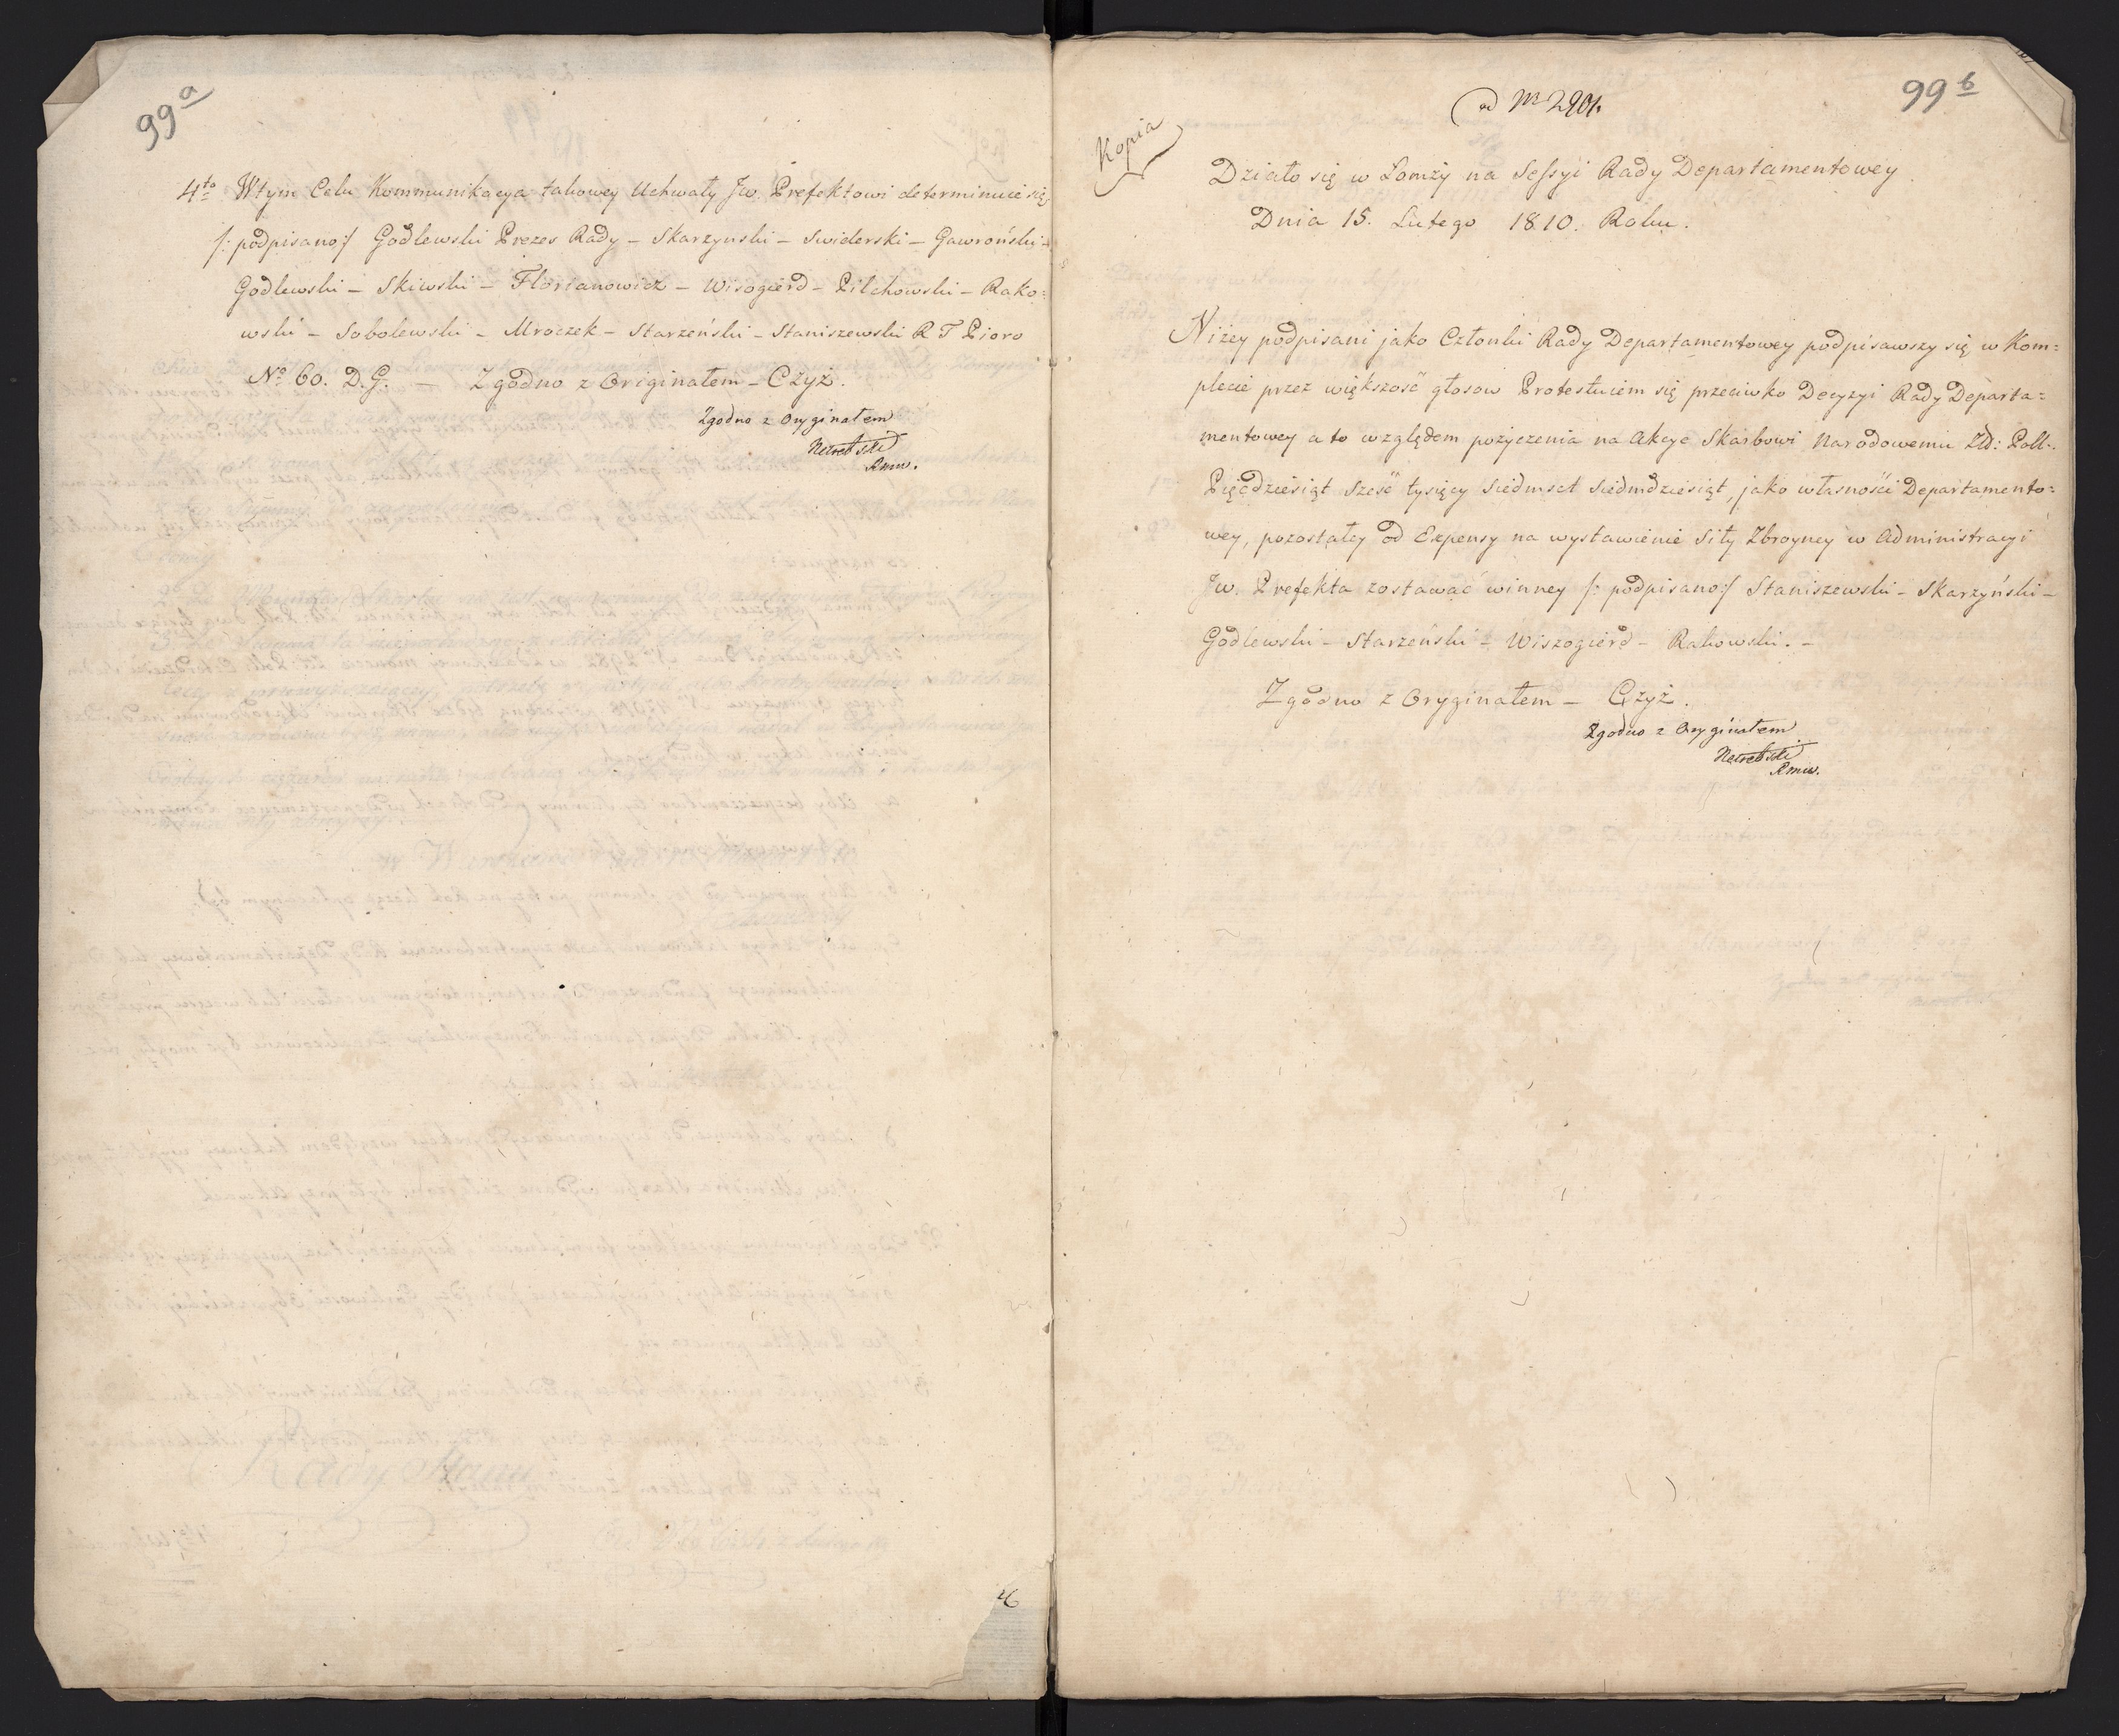 99a
4to Wtym Celu Kommunikacya takowey Uchwały Jw. Prefektowi determinuie się,
/: podpisano :/ Godlewski Prezes Rady – Skarzynski – Swiderski – Gawroński –
Godlewski – Skiwski – Floriánowicz – Wisogierd – Pilchowski – Rako=
wski – Sobolewski – Mroczek – Starzeński – Staniszewski R T Pioro
No 60. D.G. — Zgodno z Originałem – Czyż.
Zgodno z Oryginałem
99b
ad Nr 2901.
Kopia
Działo się w Łomży na Sessyi Rady Departamentowey
Dnia 15. Lutego 1810. Roku.
Niżey podpisani jako Członki Rady Departamentowey podpisawszy się w Kom=
plecie przez większość głosow Protestuiem się przeciwko Decyzyi Rady Departa=
mentowey a to względem pożyczenia na Akcye Skarbowi Narodowemu Zł: Poll:
Pięćdziesiąt Sześć tysięcy Siedmset Siedmdziesiąt, jako własności Departamento=
wey, pozostałey od Expensy na wystawienie Siły Zbroyney w Administracyi
Jw. Prefekta zostawać winney /: podpisano :/ Staniszewski – Skarzyński –
Godlewski – Starzeński – Wiszogierd – Rakowski. –
Zgodno z Oryginałem – Czyż.
Zgodno z Oryginałem